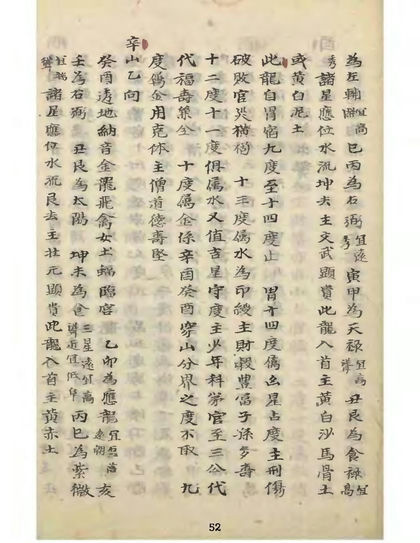 為左輔 宜高 巳丙為右弼 宜遠秀 寅甲為天祿 宜高聳 丑艮為食祿 宜高
秀 諸星應位水流坤去主文武顯貴此龍入首主黃白沙馬骨土
或黃白泥土
此龍自胃宿九度至十四度止 胃十四度偽么星占度主刑傷
破敗官災 十三度屬水為印綬主財穀豐富子孫多壽
十二度十一度俱屬水又值吉星守度主少年科第官至三公代
代福壽 十度屬金係辛酉癸酉穿山分界之度不取 九
度偽金用克体主僧道德壽墜
辛山乙向
癸酉透地納音金羅飛禽女土蝠臨宮 乙卯為應龍 亥
壬為右弼 丑艮為太陽 坤未為 三星遠宜高 丙巳為紫微
宜聳 諸星應位水流艮去主壯元顯貴此龍入首主黃赤土
52